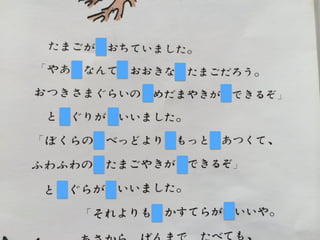 たまごが おちていました。
「やあ なんて おおきな たまごだろう。
おつきさまぐらいの めだまやきが できるぞ」
と ぐりが いいました。
「ぼくらの べっどより もっと あつくて、
ふわふわの たまごやきが できるぞ」
と ぐらが いいました。
「それよりも かすてらが いいや。
あさから ばんまで たべても、